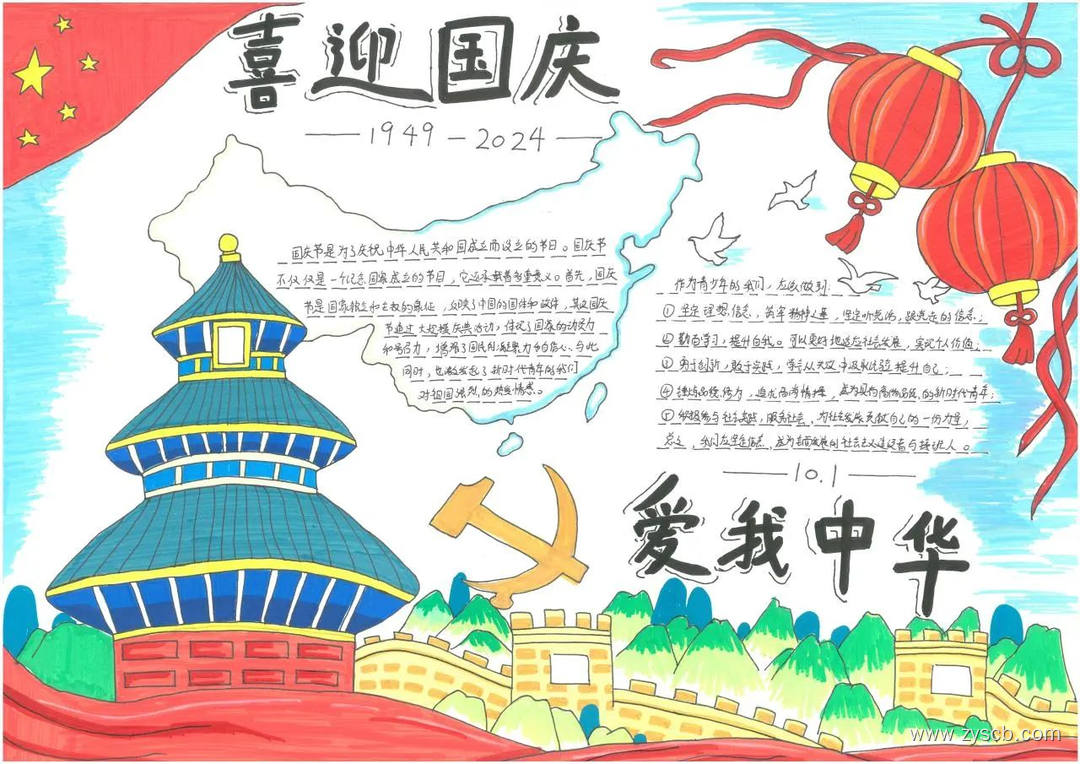 喜迎国庆
1949-2024
国庆节是为了庆祝中华人民共和国成立而设立的节日。国庆节
不仅仅是一个纪念国家成立的节日，它还承载着多重意义。首先，国庆
节是国家独立和主权的象征，反映了中国的国体和政体，其次国庆
节通过大规模庆典活动，体现了国家的动员力
和号召力，增强了国民的凝聚力和自信心。与此
同时，也激发起了新时代青年的我们
对祖国深烈的热爱情感。
作为青少年的我们，应该做到：
①坚定理想信念，筑牢精神之基，坚定听党话，跟党走的信念；
②勤奋学习，提升自我。可以更好地适应社会发展，实现个人价值；
③勇于创新，敢于实践，学会从失败中汲取经验提升自己；
④锤炼品德修为，追求高尚情操，成为拥有高尚品德的新时代青年；
⑤积极参与社会实践，服务社会，为社会发展贡献自己的一份力量；
总之，我们应坚定信念，成为全面发展的社会主义建设者与接班人。
10.1
爱我中华
www.zyscb.com